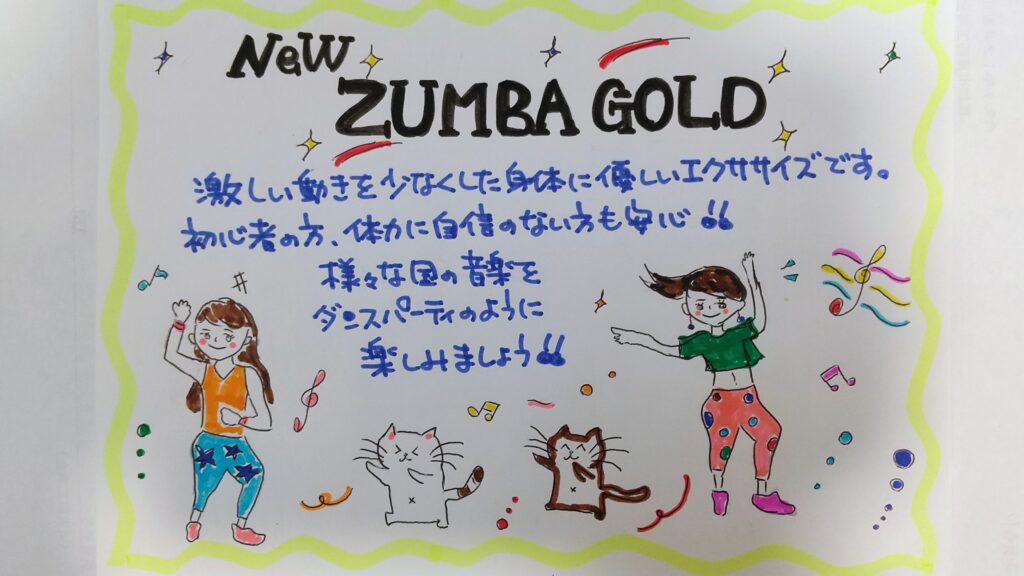 NeW
ZUMBA GOLD
激しい動きを少なくした身体に優しいエクササイズです。
初心者の方、体力に自信のない方も安心!!
様々な国の音楽を
ダンスパーティのように
楽しみましょう!!